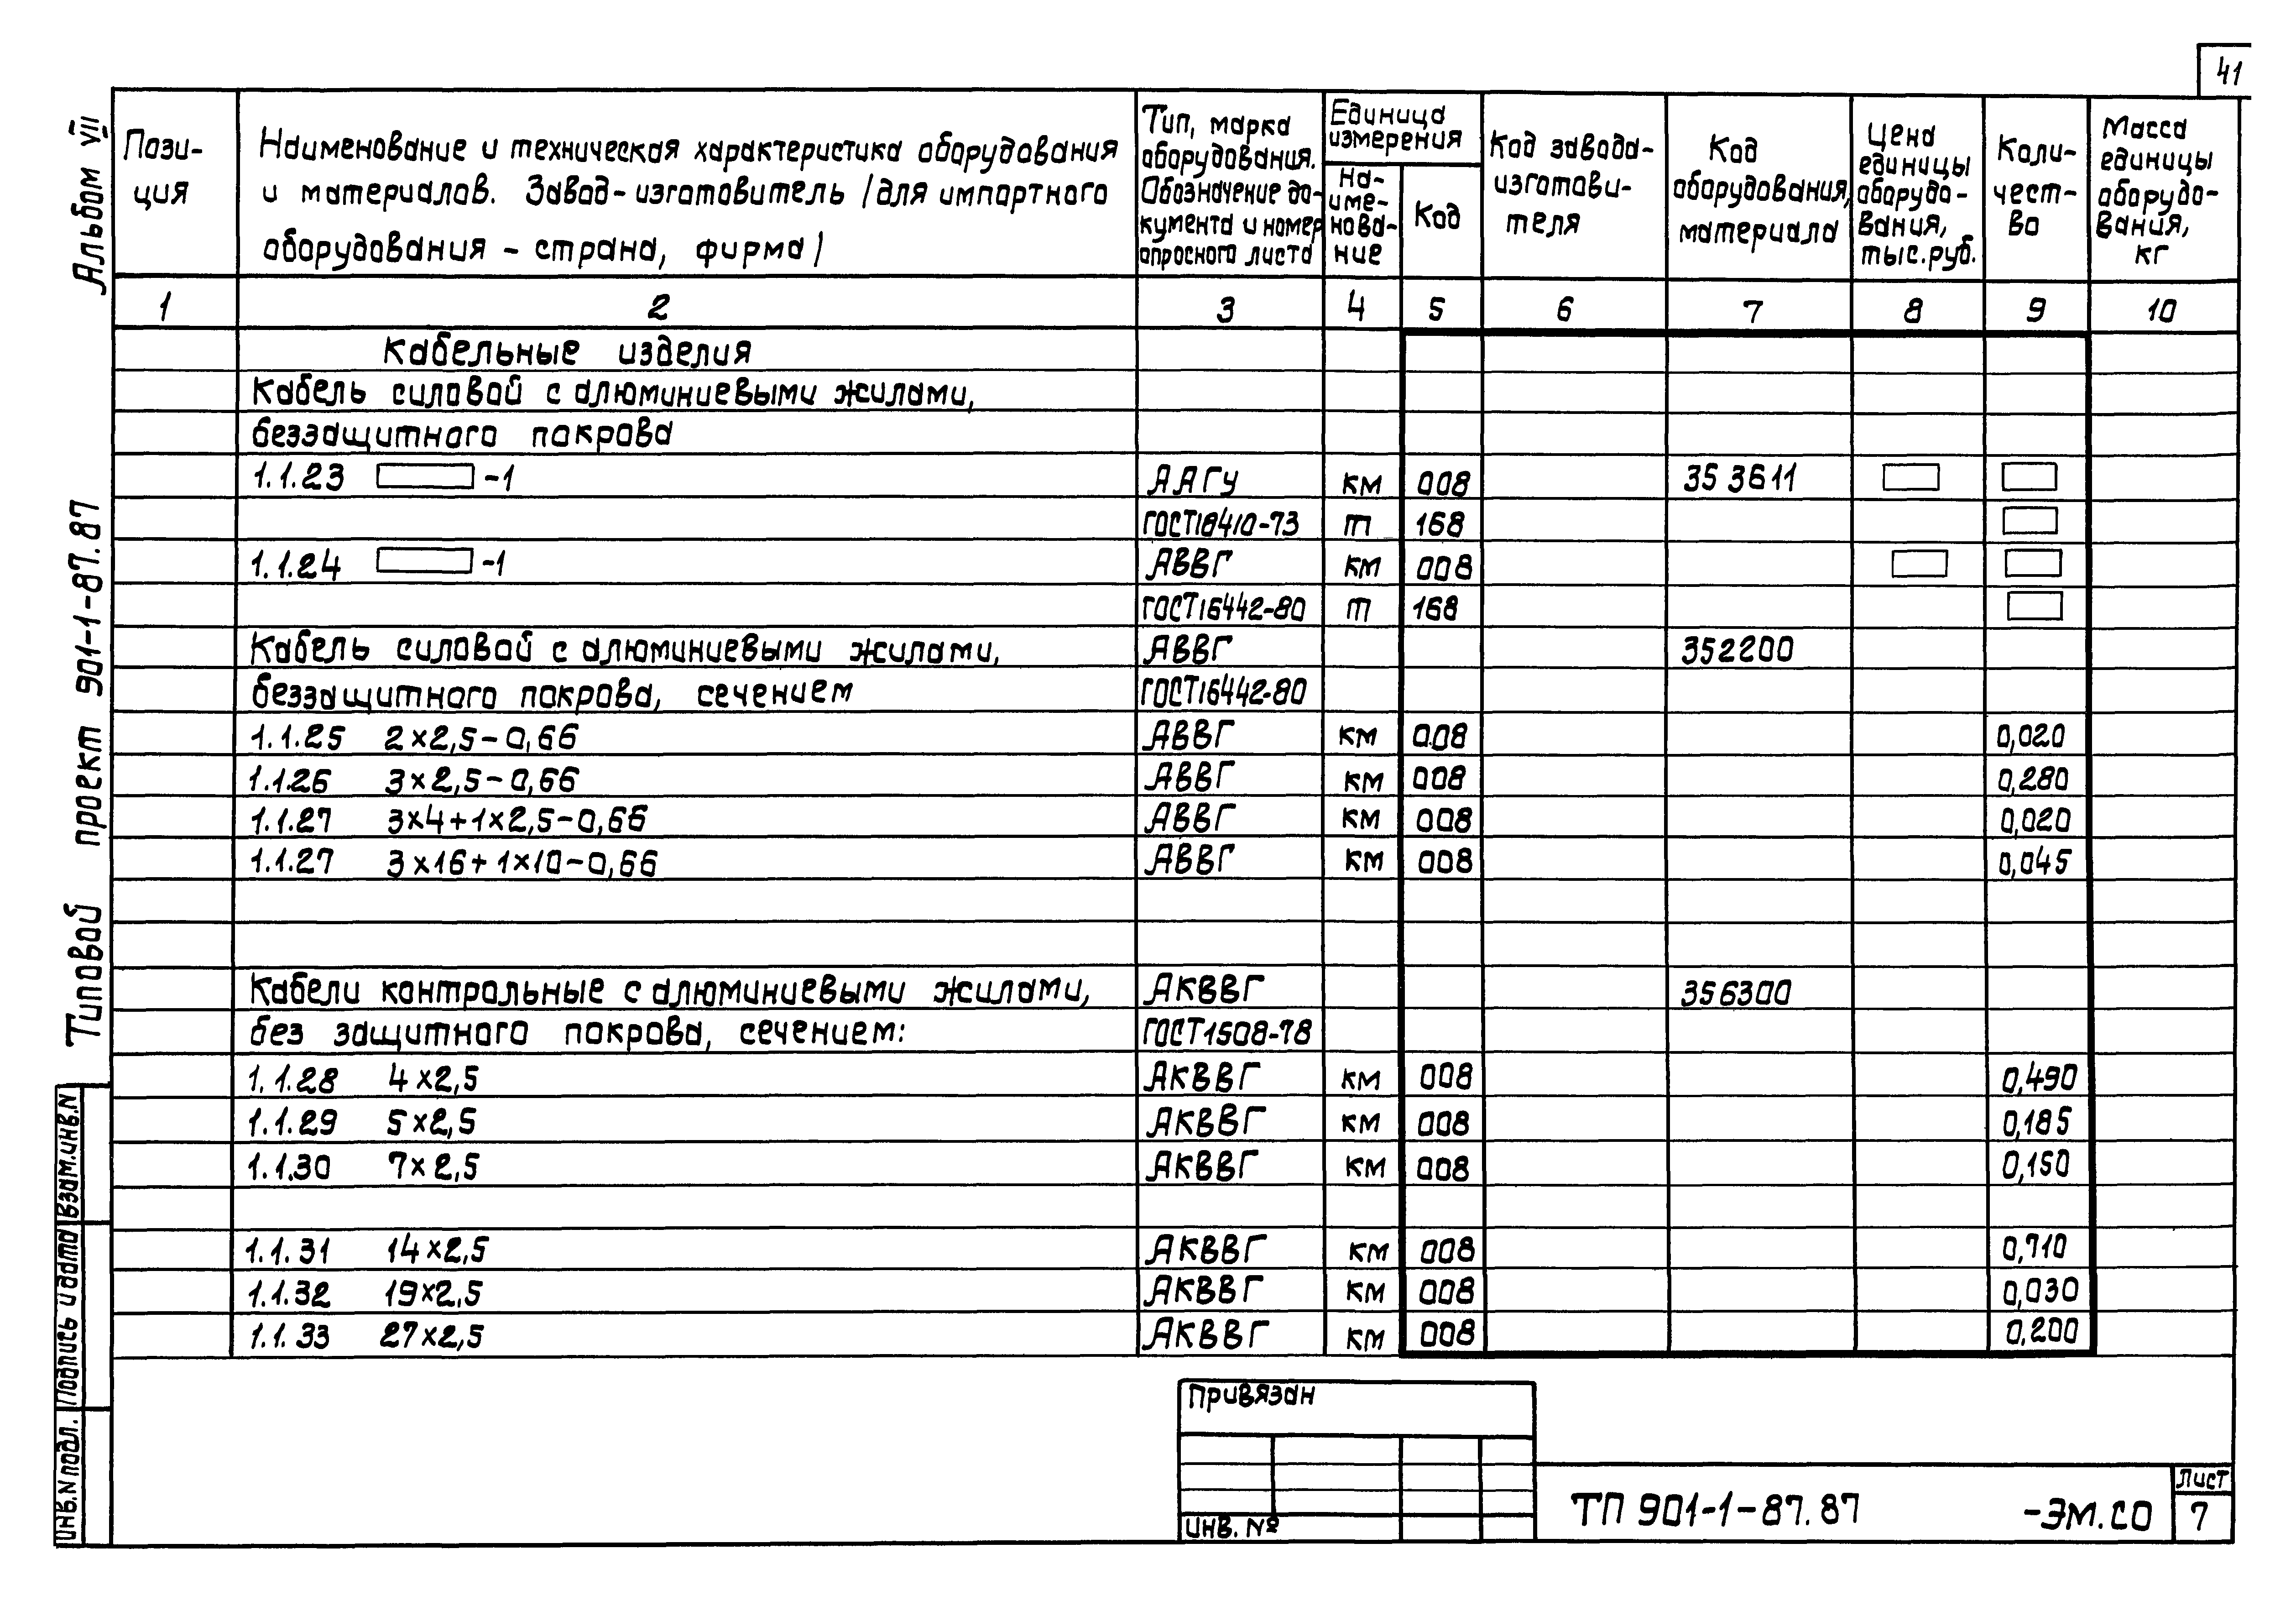 41
Альбом VII
Типовой проект 901-1-87.87
Пози-
ция
Наименование и техническая характеристика оборудования
и материалов. Завод-изготовитель /для импортного
оборудования - страна, фирма/
Тип, марка
оборудования.
Обозначение до-
кумента и номер
опросного листа
Единица
измерения
На-
име-
нова-
ние
Код
Код завода-
изготови-
теля
Код
оборудования,
материала
Цена
единицы
оборудо-
вания,
тыс.руб.
Коли-
чест-
во
Масса
единицы
оборудо-
вания,
кг
1 2 3 4 5 6 7 8 9 10
Кабельные изделия
Кабель силовой с алюминиевыми жилами,
беззащитного покрова
1.1.23 -1 ААГУ км 008 353611
ГОСТ18410-73 т 168
1.1.24 -1 АВВГ км 008
ГОСТ16442-80 т 168
Кабель силовой с алюминиевыми жилами, АВВГ 352200
беззащитного покрова, сечением ГОСТ16442-80
1.1.25 2×2,5-0,66 АВВГ км 008 0,020
1.1.26 3×2,5-0,66 АВВГ км 008 0,280
1.1.27 3×4+1×2,5-0,66 АВВГ км 008 0,020
1.1.27 3×16+1×10-0,66 АВВГ км 008 0,045
Кабели контрольные с алюминиевыми жилами, АКВВГ 356300
без защитного покрова, сечением: ГОСТ1508-78
1.1.28 4×2,5 АКВВГ км 008 0,490
1.1.29 5×2,5 АКВВГ км 008 0,185
1.1.30 7×2,5 АКВВГ км 008 0,150
1.1.31 14×2,5 АКВВГ км 008 0,710
1.1.32 19×2,5 АКВВГ км 008 0,030
1.1.33 27×2,5 АКВВГ км 008 0,200
Инв.N подл. Подпись и дата Взам.инв.N
Привязан
Инв. №
ТП 901-1-87.87 -ЭМ.СО
Лист
7